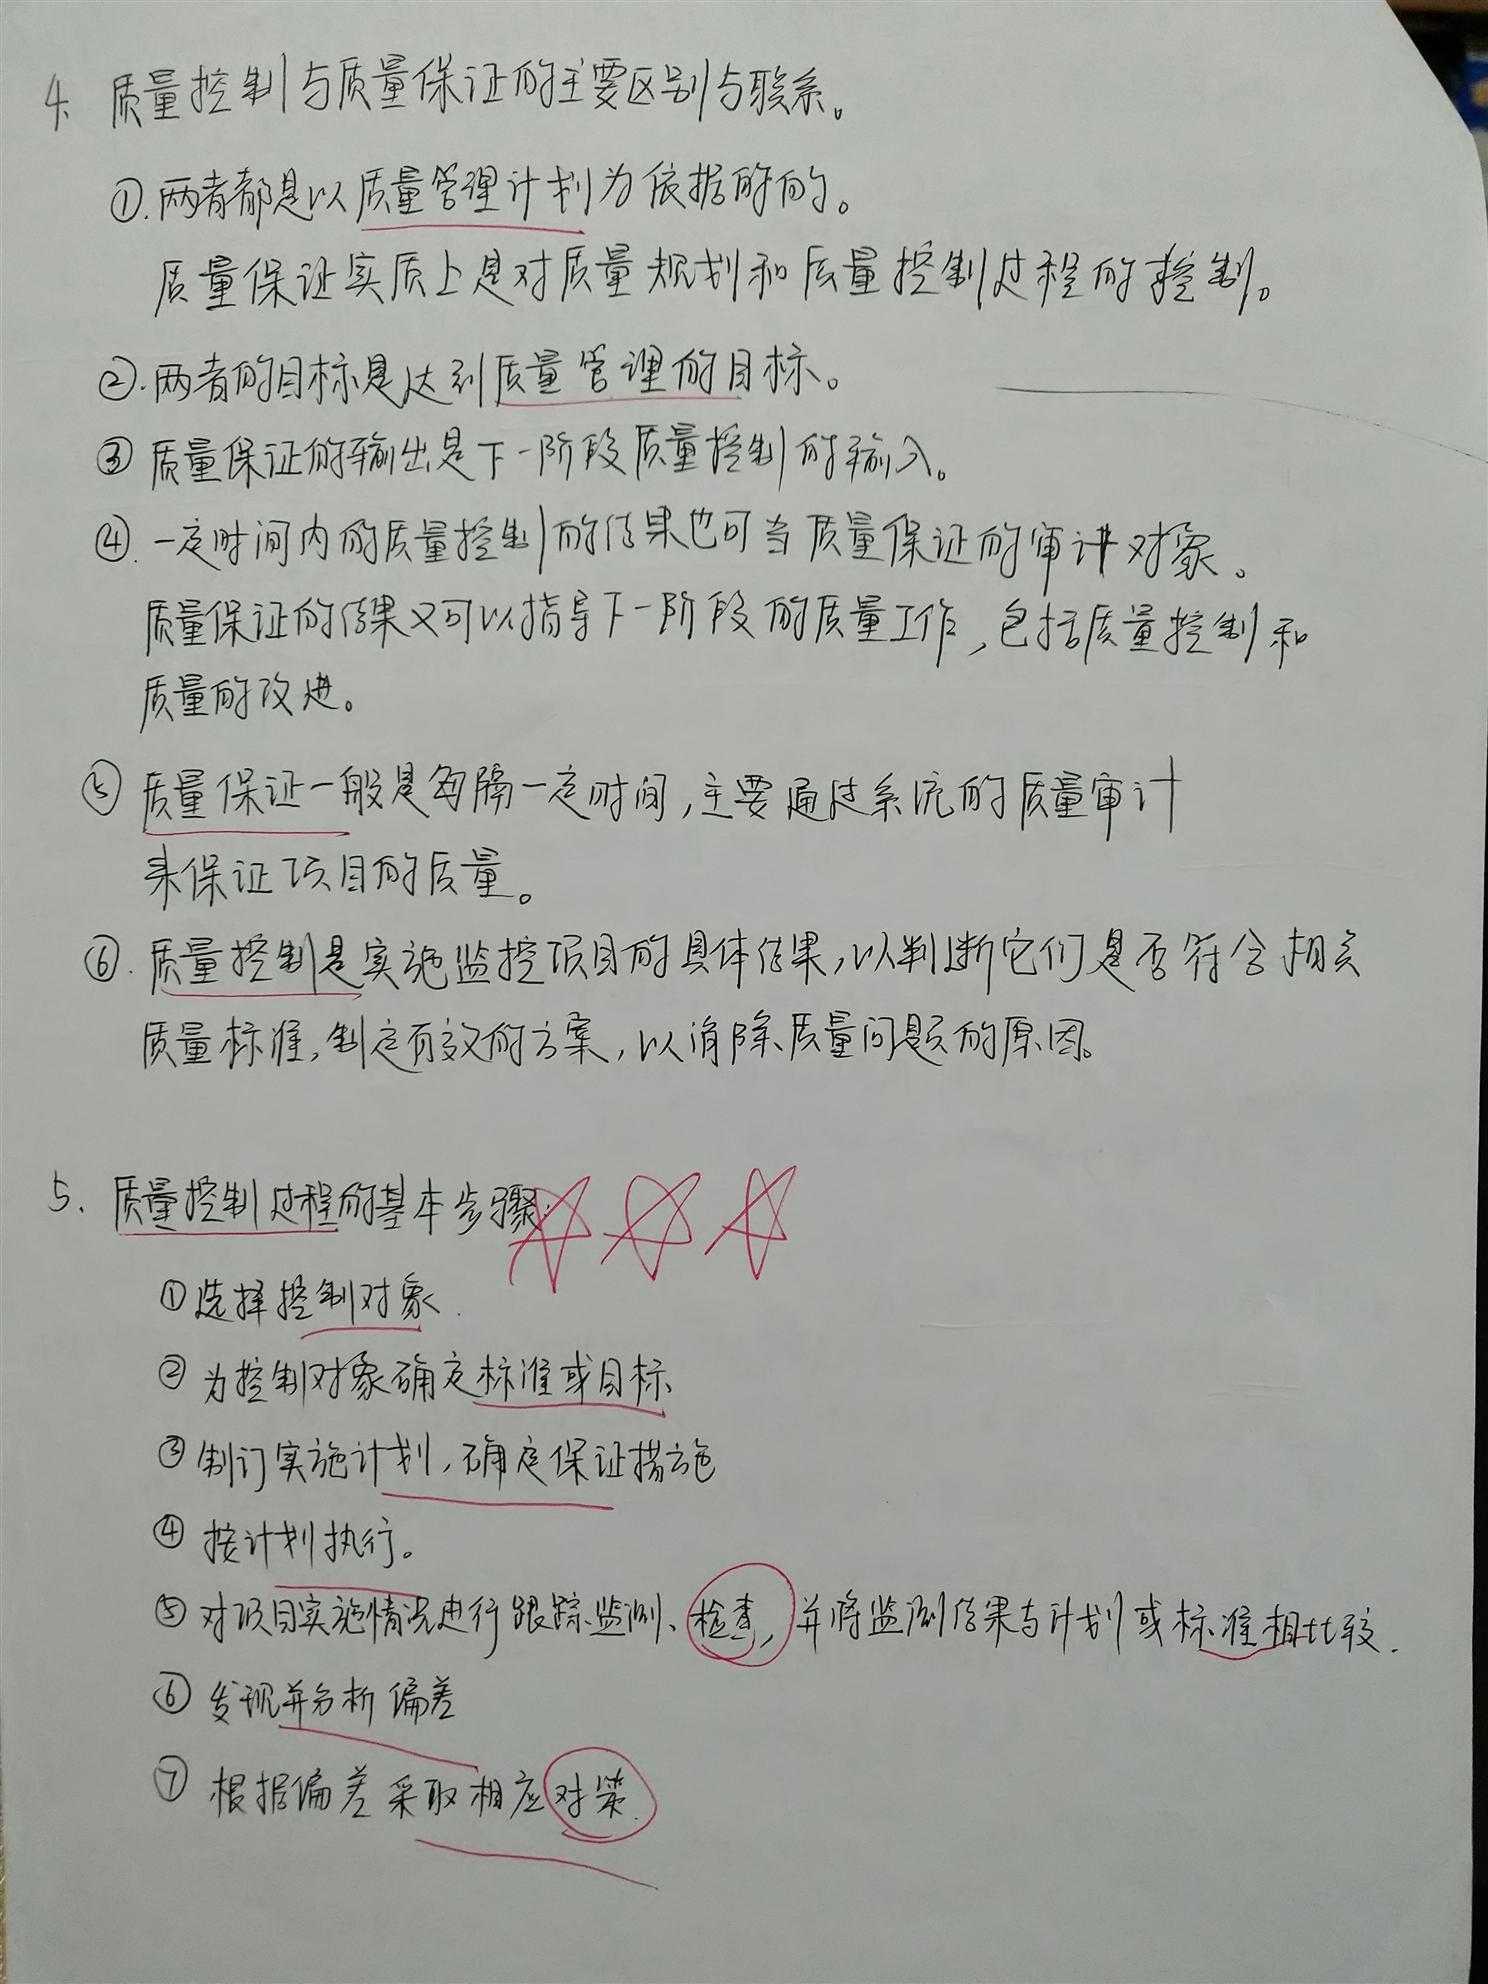 4. 质量控制与质量保证的主要区别与联系。
①.两者都是以质量管理计划为依据的的。
质量保证实质上是对质量规划和质量控制过程的控制。
②.两者的目标是达到质量管理的目标。
③ 质量保证的输出是下一阶段质量控制的输入。
④.一定时间内的质量控制的结果也可当质量保证的审计对象。
质量保证的结果又可以指导下一阶段的质量工作,包括质量控制和
质量的改进。
⑤ 质量保证一般是每隔一定时间,主要通过系统的质量审计
来保证项目的质量。
⑥.质量控制是实施监控项目的具体结果,以判断它们是否符合相关
质量标准,制定有效的方案,以消除质量问题的原因。
5. 质量控制过程的基本步骤:
①选择控制对象.
② 为控制对象确定标准或目标
③ 制订实施计划,确定保证措施
④ 按计划执行。
⑤ 对项目实施情况进行跟踪监测、检查,并将监测结果与计划或标准相比较.
⑥ 发现并分析偏差
⑦ 根据偏差采取相应对策.